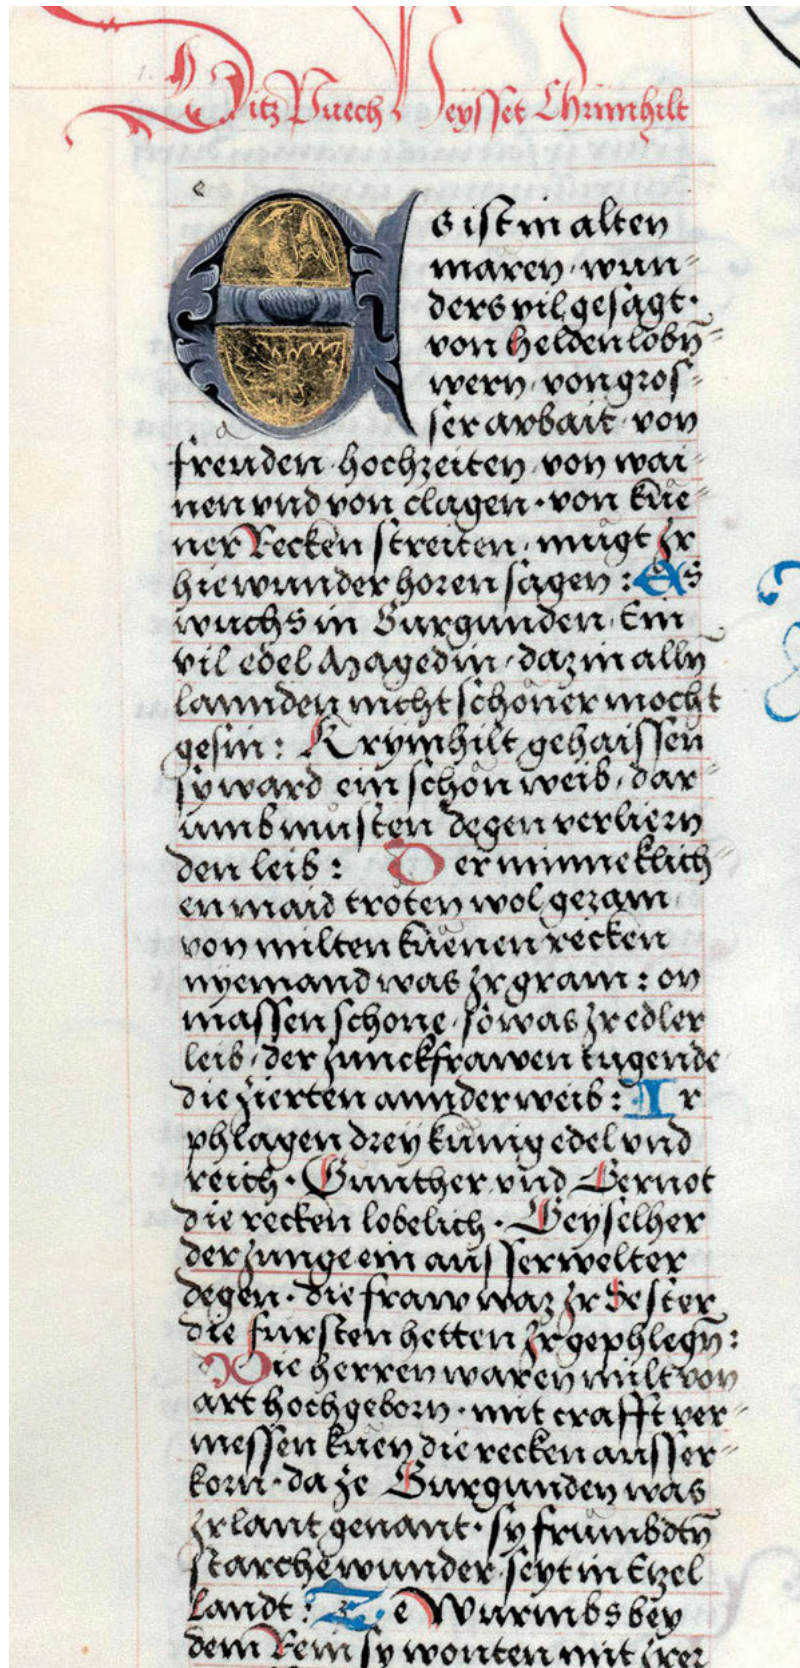 Ditz Puech Heysset Chrimhilt
Es ist in alten
maren · wun=
ders vil gesagt ·
von helden lobn̄=
wern · von gros=
ser arbait · von
freuden · hochzeiten · von wai=
nen vnd von clagen · von küe=
ner Recken streiten · mugt Ir
hie wunder horen sagen : Es
wuchs in Burgunden · Ein
vil edel Magedin · daz in alln̄
lannden nicht schoner mocht
gesin : Krymhilt gehaissen
sy ward ein schön weib · dar=
umb müsten degen verliern
den leib : Der minneklich=
en maid trőten wol gezam ·
von milten küenen recken
nyemand was Ir gram : on
massen schone · so was Ir edler
leib · der Junckfrawen tugende
die zierten annder weib : Ir
phlagen drey kunig edel vnd
reich · Gunther vnd Gernot
die recken lobelich · Geyselher
der Junge ein ausserwelter
degen · die fraw waz Ir Swester
die fürsten hetten Ir gephlegn̄ :
Die herren waren milt von
art hochgeborn · mit crafft ver=
messen küen die recken ausser=
korn · da ze Burgunden was
Ir lant genant · sy frumbdtn̄
starche wunder · seyt in Etzel
landt : Ze Wurmbs bey
dem Rein sy wonten mit Irer